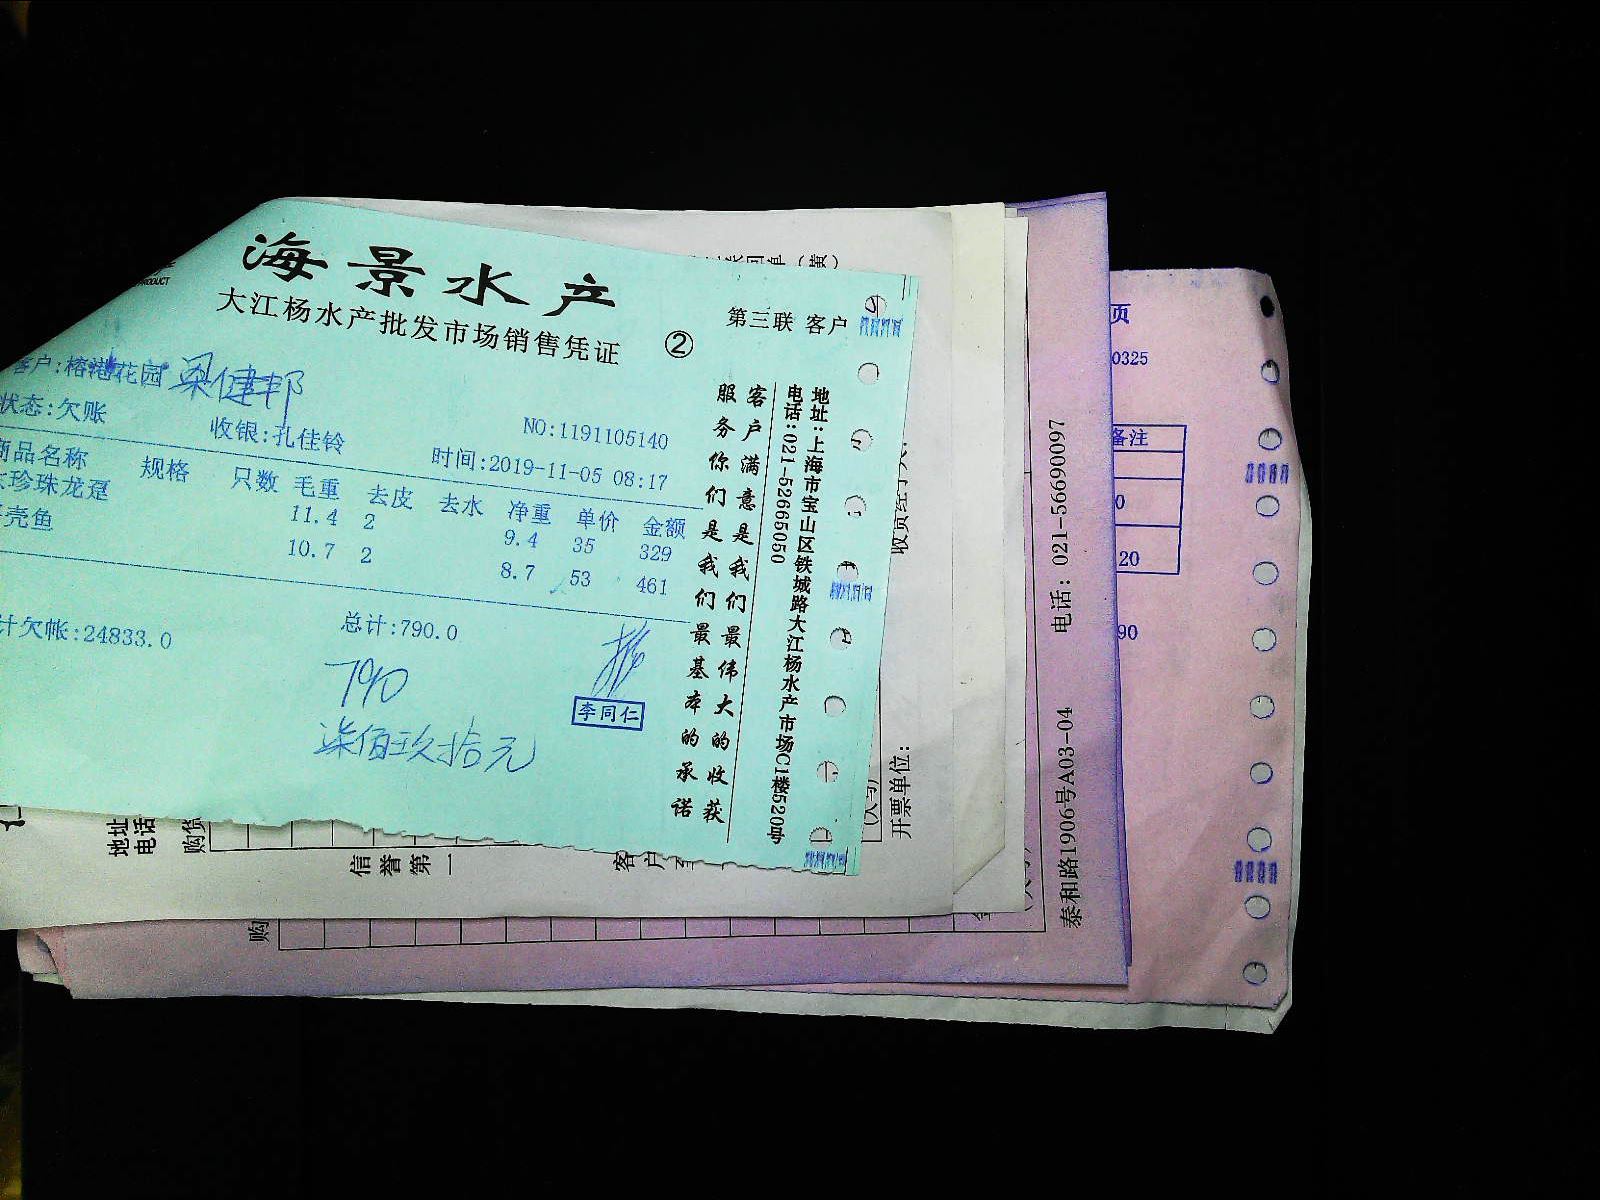 海景水产
大江杨水产批发市场销售凭证
②
第三联 客户
PRODUCT
客户:榕港花园 梁健邦
状态:欠账
收银:孔佳铃
NO:1191105140
时间:2019-11-05 08:17
商品名称 规格 只数 毛重 去皮 去水 净重 单价 金额
珍珠龙趸 11.4 2 9.4 35 329
壳鱼 10.7 2 8.7 53 461
计欠帐:24833.0 总计:790.0
790
柒佰玖拾元
李同仁
客户满意是我们最伟大的收获
服务你们是我们最基本的承诺
地址:上海市宝山区铁城路大江杨水产市场C1楼520号
电话:021-52665050
地址
电话
购货
信誉第一
客户至
收货经手人:
开票单位:
购
泰和路1906号A03-04 电话: 021-56690097
页
0325
备注
0
20
90